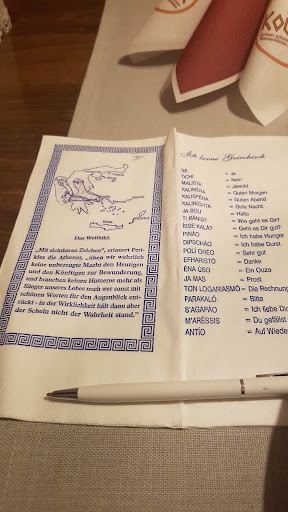 Das Weltbild:
„Mit sichtbaren Zeichen", erinnert Peri-
kles die Athener, „üben wir wahrlich
keine unbezeugte Macht den Heutigen
und den Künftigen zur Bewunderung,
und brauchen keinen Homeros mehr als
Sänger unseres Lobes noch wer sonst mit
schönen Worten für den Augenblick ent-
zückt - in der Wirklichkeit hält dann aber
der Schein nicht der Wahrheit stand."
Ich lerne Griechisch
NE = Ja
OCHI = Nein
MALISTA = Jawohl
KALIMÉRA = Guten Morgen
KALISPÉRA = Guten Abend
KALINÍCHTA = Gute Nacht
JA SOU = Hallo
TI KÁNIS? = Wie geht es Dir?
ISSE KALÁ? = Geht es Dir gut?
PINÁO = Ich habe Hunger
DIPSCHÁO = Ich habe Durst
POLÍ ORÉO = Sehr gut
EFHARISTÓ = Danke
ÉNA ÚSO = Ein Ouzo
JA MAS = Prost
TON LOGARIASMÓ = Die Rechnung
PARAKALÓ = Bitte
S'AGAPÁO = Ich liebe Dic
M'ARÉSSIS = Du gefällst
ANTÍO = Auf Wiede